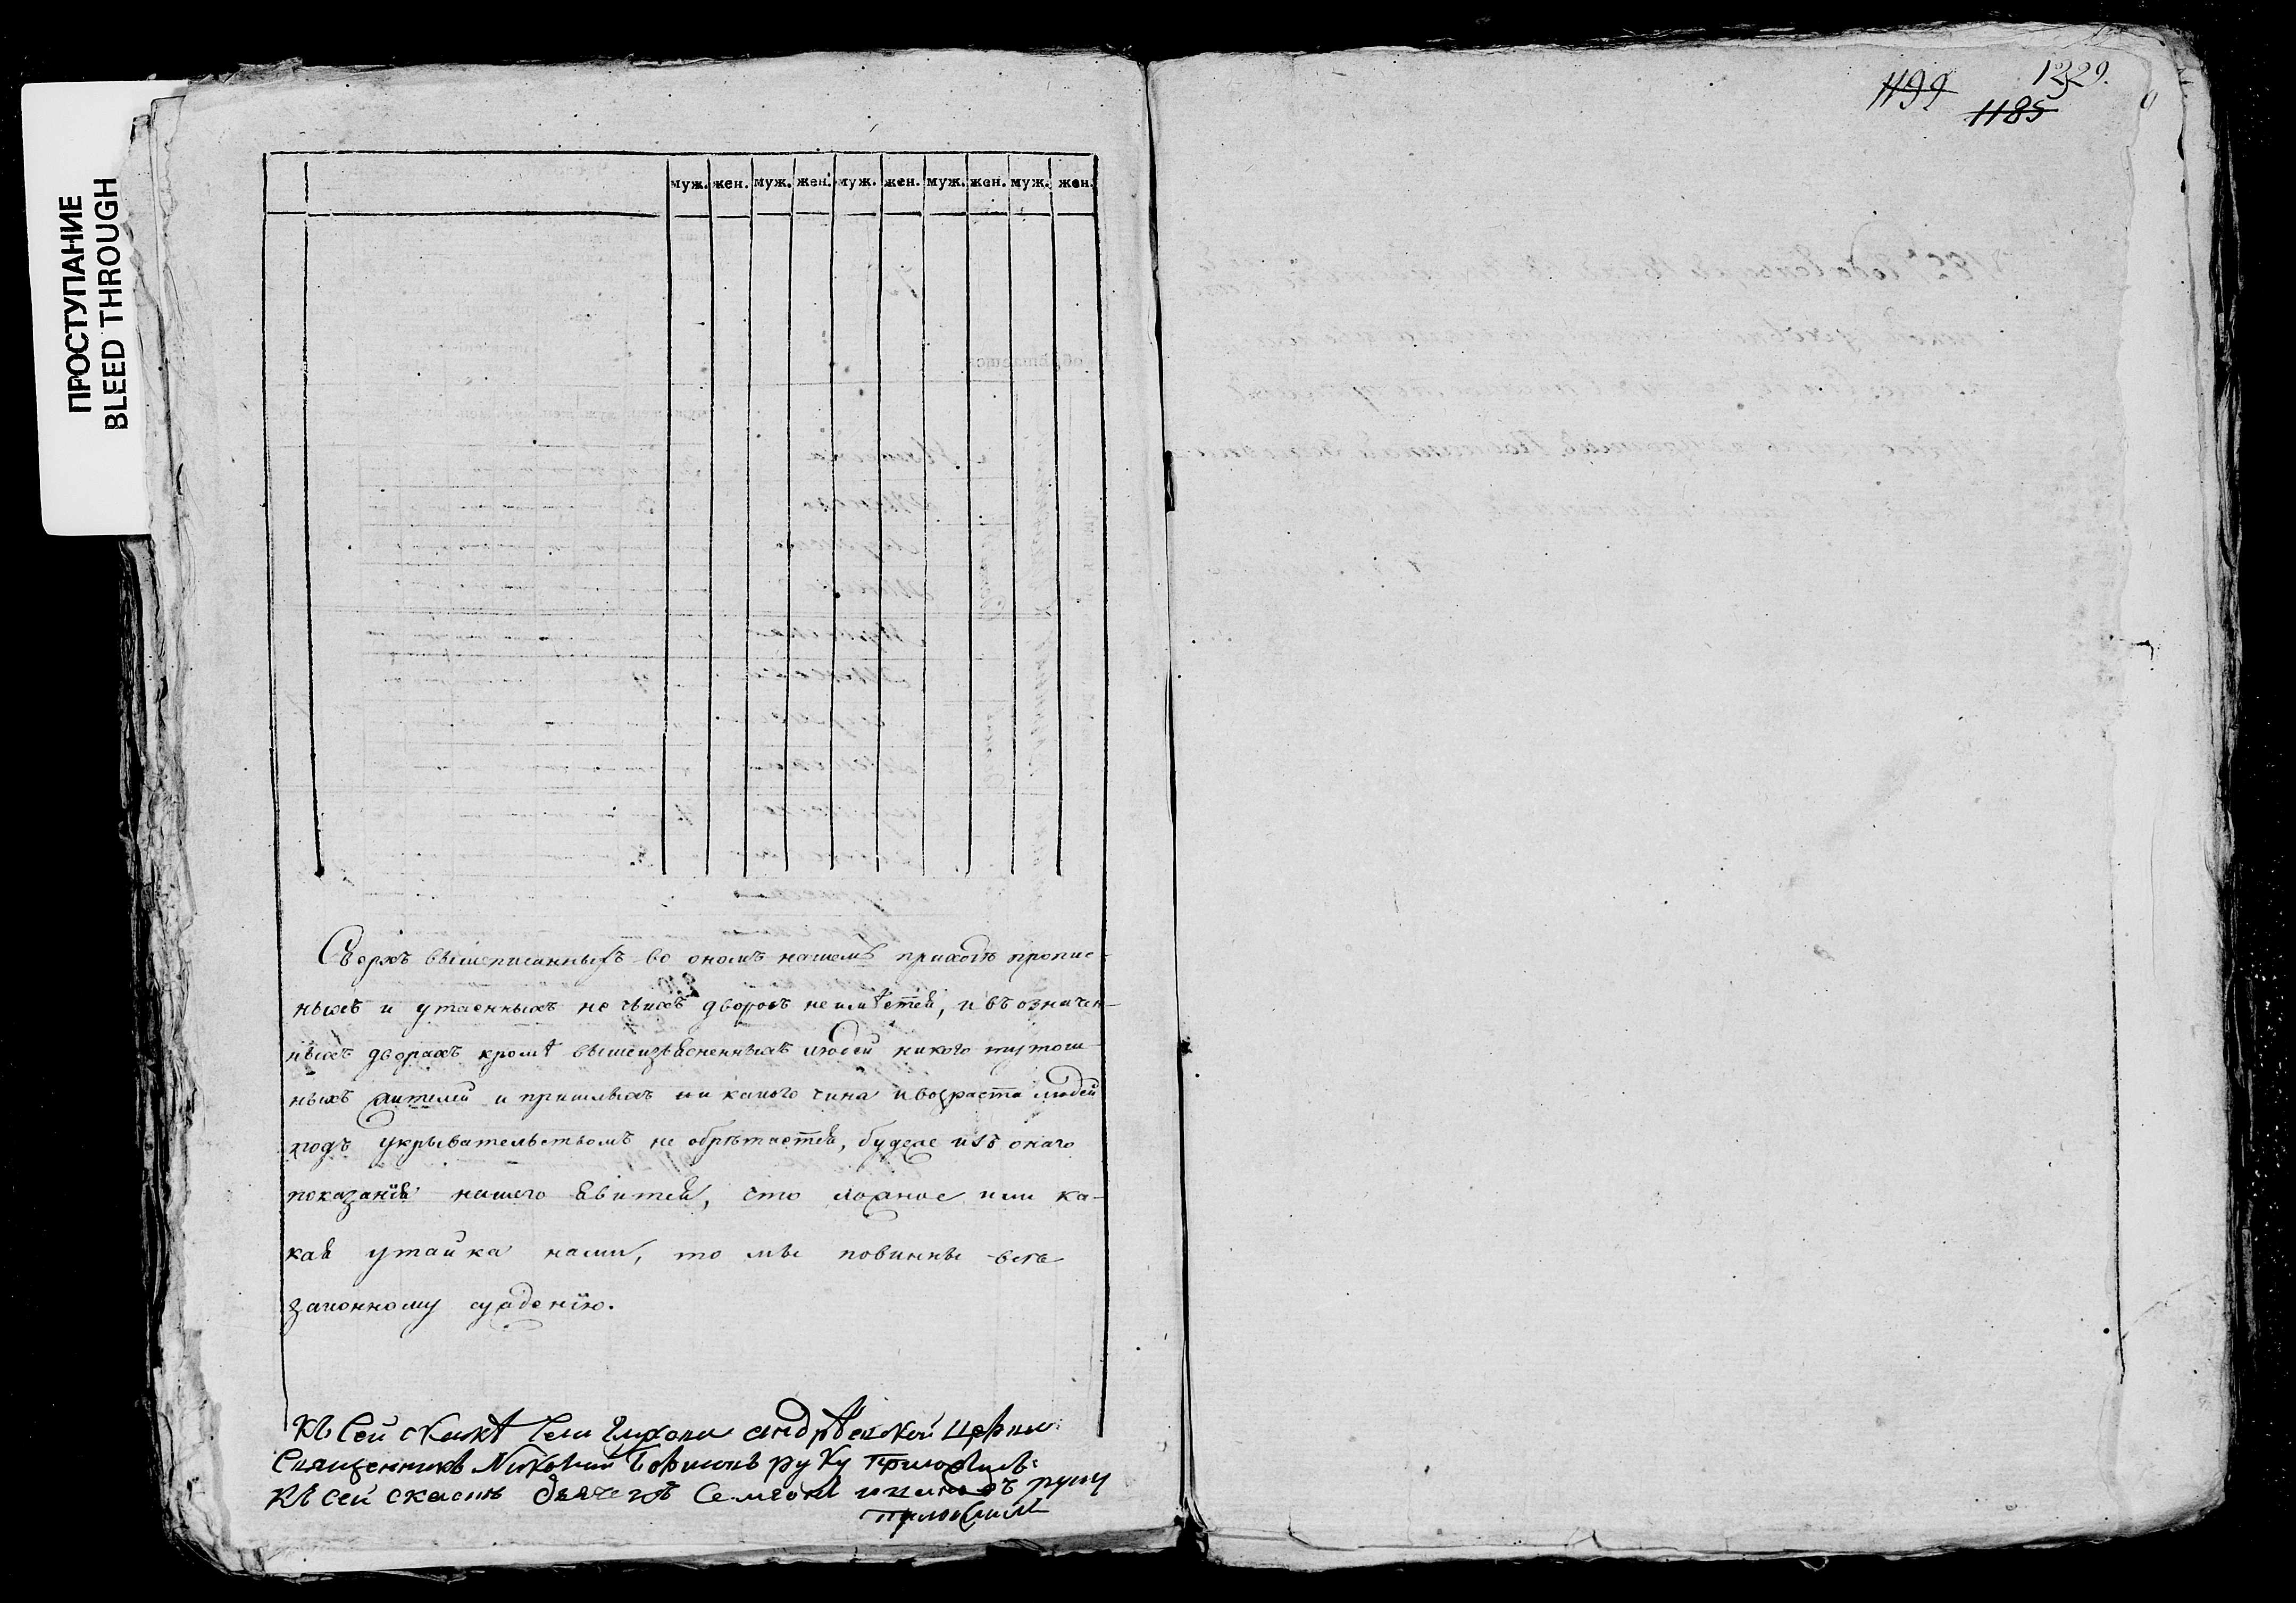 ПРОСТУПАНИЕ
BLEED THROUGH
муж. жен. муж. жен. муж. жен. муж. жен. муж. жен.
Сверхъ вышеписанныхъ во ономъ нашемъ приходѣ пропис-
ныхъ и утаенныхъ не чьихъ дворовъ неимѣетсѧ, и въ означен-
ныхъ дворахъ кромѣ вышеизѧсненныхъ людей никого тутош
ныхъ жителей и пришлыхъ ни какого чина и возраста людей
подъ укрывательствомъ не обрѣтаетсѧ, будеже изъ онаго
показанїѧ нашего ѧвитсѧ, что ложное или ка-
каѧ утайка нами, то мы повинны всѣ
законному суждению.
Къ сей скаскѣ села андрѣевской церкви
Священникъ руку приложилъ:
Къ сей скаски дьячегъ Семионъ руку
приложилъ
1199
1229.
1185